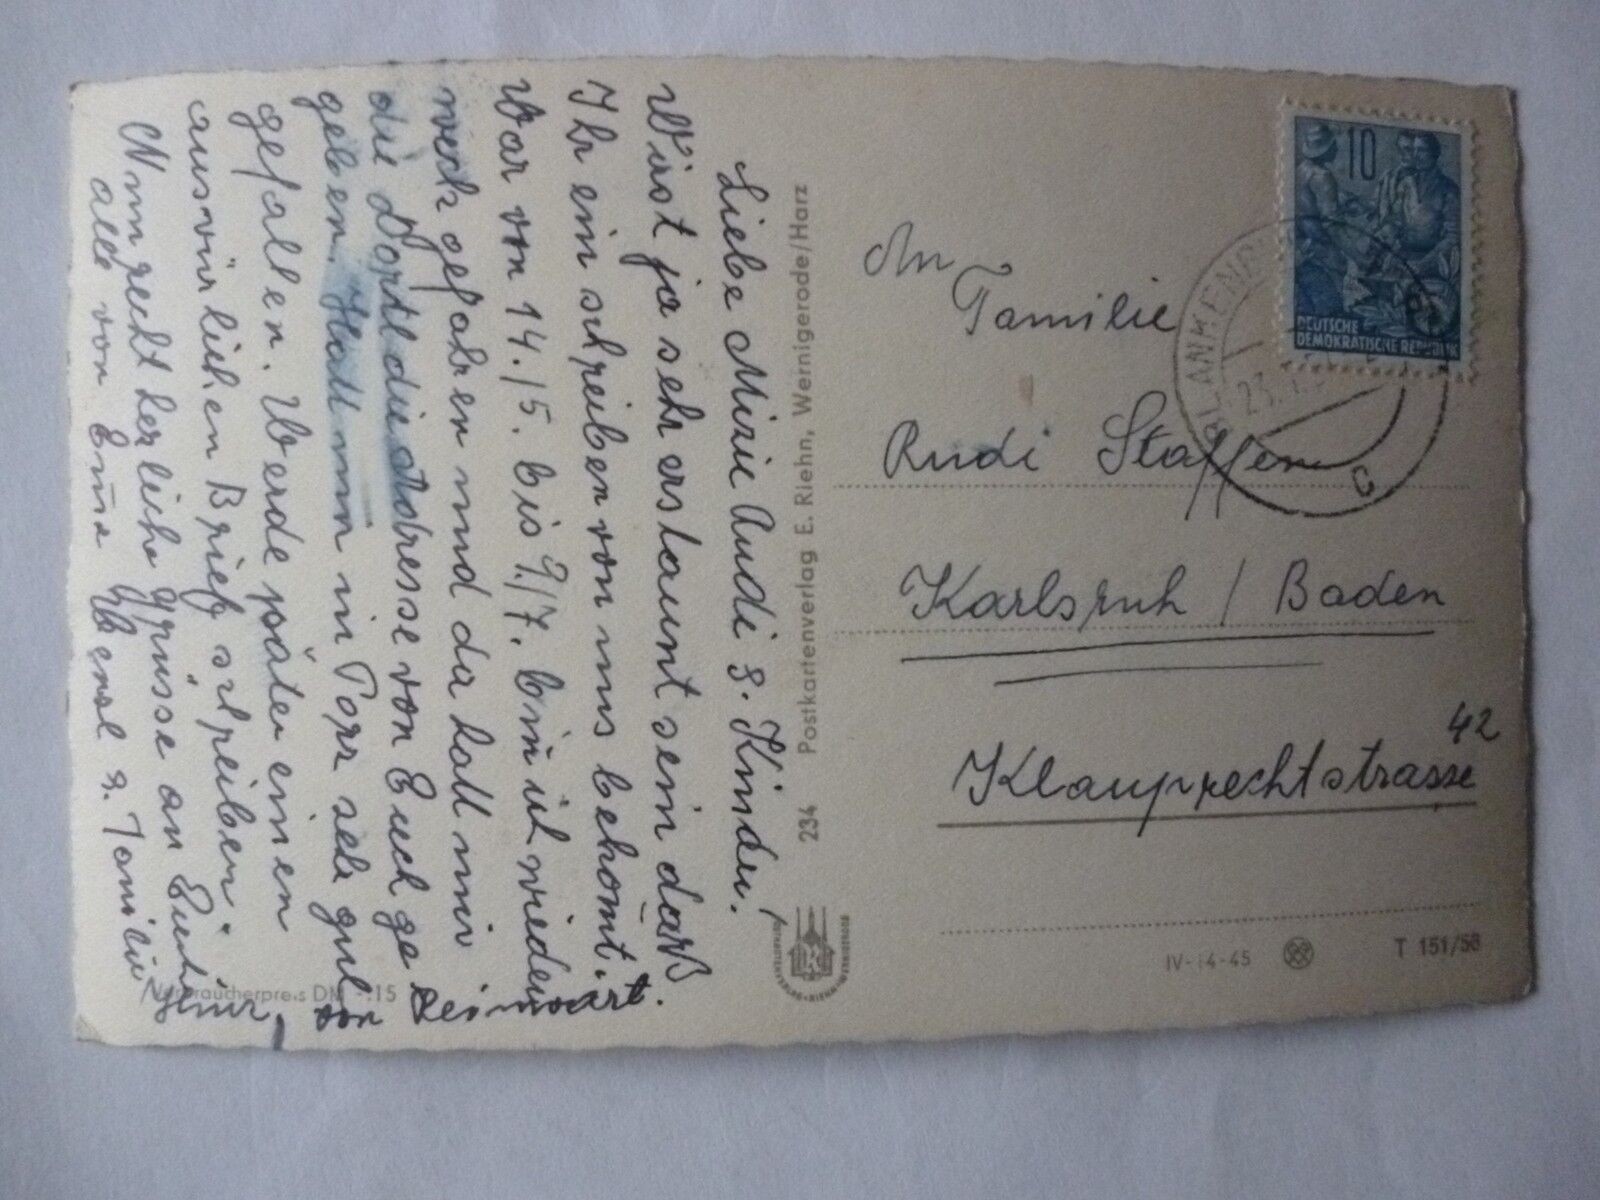 Liebe Mizie Rudi s. Kinder.
Wirst ja sehr erstaunt sein daß
Ihr ein schreiben von uns bekomt.
War von 14./5. bis 9./7. bin ich wieder
weck gefahren und da hatt mir
die Dortl die Adresse von Euch ge
geben. Hatt mir in Porz sehr gut
gefallen. Werde später einen
ausvürlichen Brief schreiben.
Nun recht herzliche Grüsse an Euch
alle von Eure s. Familie
Heinz, von
Verbraucherpreis DM -.15
234 Postkartenverlag E. Riehn, Wernigerode/Harz
10
DEUTSCHE
DEMOKRATISCHE REPUBLIK
BLANKENB
23.
c
An
Familie
Rudi Staffen
Karlsruh / Baden
Klauprechtstrasse 42
IV-14-45 T 151/56